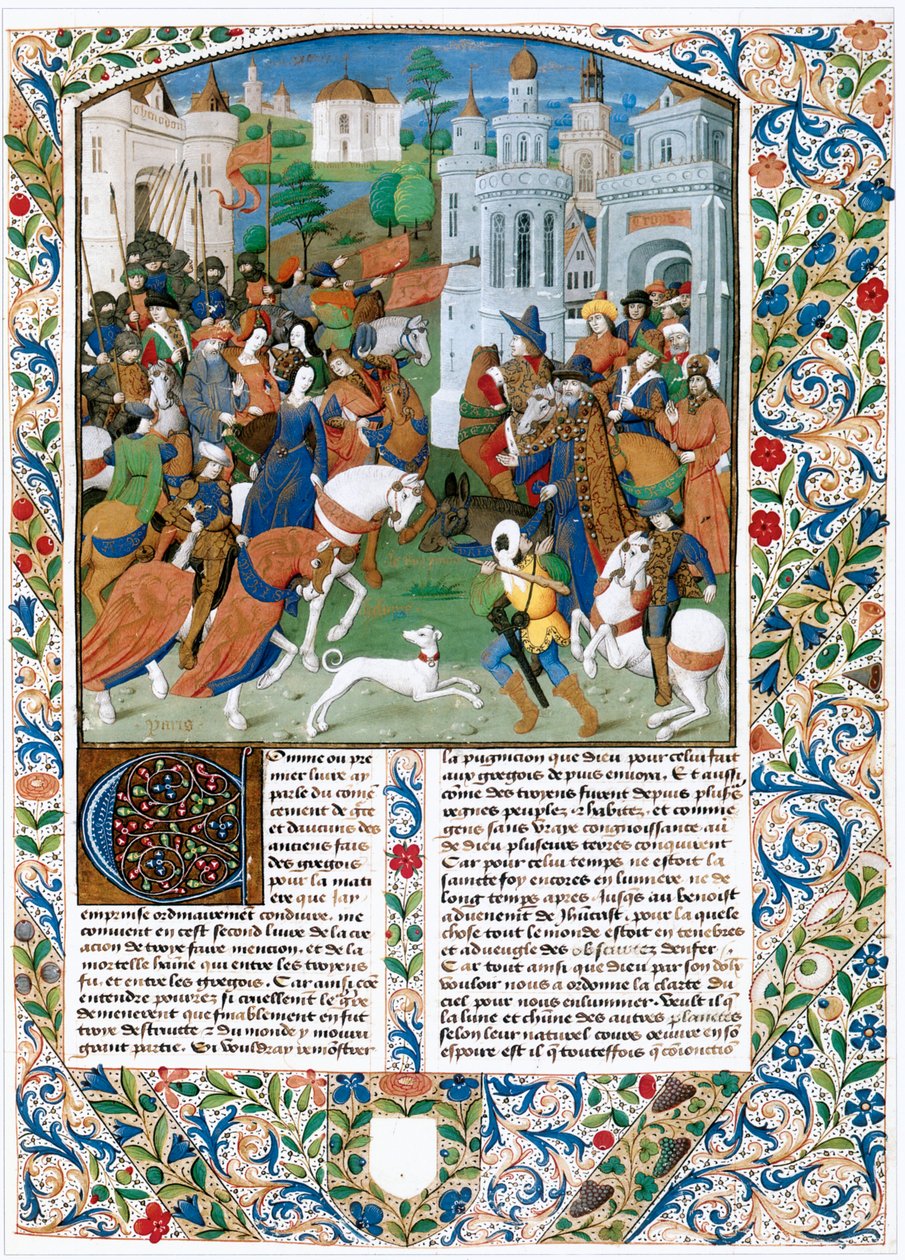 Thenedon
Troye
Paris
Comme ou pre
mier livre ay
parle du com̄
cement de g̃ce
et daucuns des
anciens fais
des gregois
pour la mati
ere que jay
emprinse ordinairemēt conduire. me
convient en cest second livre de la cre
acion de troye faire mencion. et de la
mortelle haine qui entre les troyens
fu, et entre les gregois. Car ainsi cōe
entendre pourez si cruellemēt le g̃re
demenerent que finablement en fut
troye destruitte ⁊ du monde y mouru
grant partie. Si vouldray demōstrer
la pugnicion que dieu pour celui fait
aux gregois depuis envoya. Et aussi
cōme des troyens furent depuis plus̃
regnes peuplez ⁊ habitez. et comme
gens sans vraye congnoissance au
de dieu plusieurs terres conquirent
Car pour celui temps ne estoit la
saincte foy encores en lumiere ne de
long temps apres. Jusq̄s au benoist
advenemēt de Jhūcrist. pour la quele
chose tout le monde estoit en tenebres
et adveugle des obscurtez denfer.
Car tout ainsi que dieu par son doulz
vouloir nous a ordonne la clarte du
ciel pour nous enluminer. Veult il q̄
la lune et ch̃une des autres planetes
selon leur naturel cours oeuvre en sō
espoire est il q̄ touteffois q̄ cōionctiō